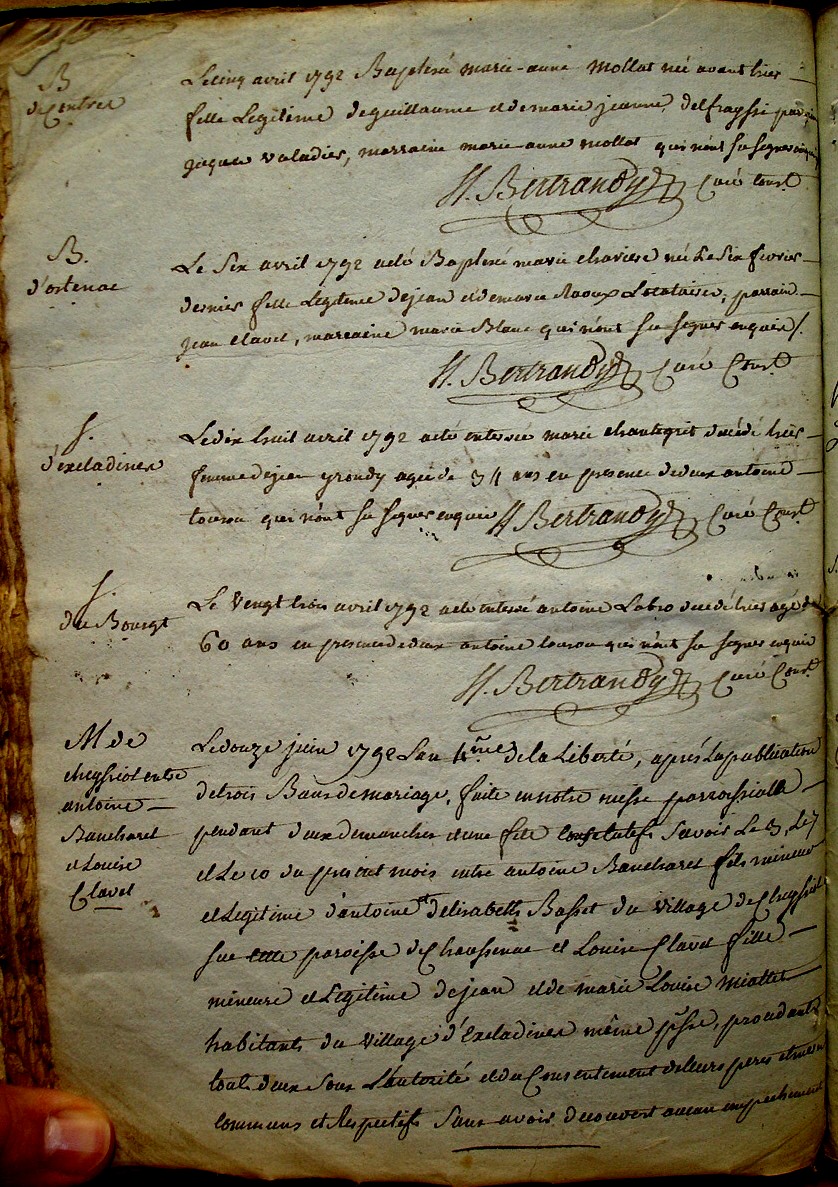 B
de Contres
Le cinq avril 1792 Baptisé marie-anne mollat née avant hier
fille Legitime de guillaume et de marie jeanne delfrayssi
jaques valadier, marraine marie anne mollat qui n'ont su signer
H. Bertrandy Curé Const.
B.
d'ostenac
Le Six avril 1792 a eté Baptisé marie chariere née Le Six fevrier
dernier fille Legitime de jean et de marie Raoux Locataires, parrain
jean clavel, marraine marie Blanc qui n'ont su signer enquis/.
H. Bertrandy Curé Const.
S.
d'exeladines
Le dix huit avril 1792 a eté enterrée marie chantegrit décédé hier
femme de jean yrondy agée de 34 ans en presence de deux antoine
tourou qui n'ont su signer enquis H Bertrandy Curé Const.
S.
du Bourgt
Le Vingt trois avril 1792 a eté enterré antoine Labro décédé hier agé de
60 ans en presence de deux antoine tourou qui n'ont su signer enquis
H. Bertrandy Curé Const.
M de
cheyssiol entre
antoine
Bancharel
et Louise
Clavel
Le douze juin 1792 L'an 4me. de la Liberté, après La publication
de trois Bans de mariage, faite en notre messe parroissialle
pendant deux dimanches et une fete Consecutifs Savoir Le 3, Le 7
et Le 10 du present mois entre antoine Bancharel fils mineur
et Legitime d'antoine et d'elisabeth Basset du village de Cheyssiol
sur cette paroisse de Chaussenac et Louise Clavel fille
mineure et Legitime de jean et de marie Louise miallet
habitants du village d'Exeladines même psse, procedants
touts deux Sous L'autorité et du Consentement de leurs peres et meres
communs et Respectifs Sans avoir decouvert aucun empechement